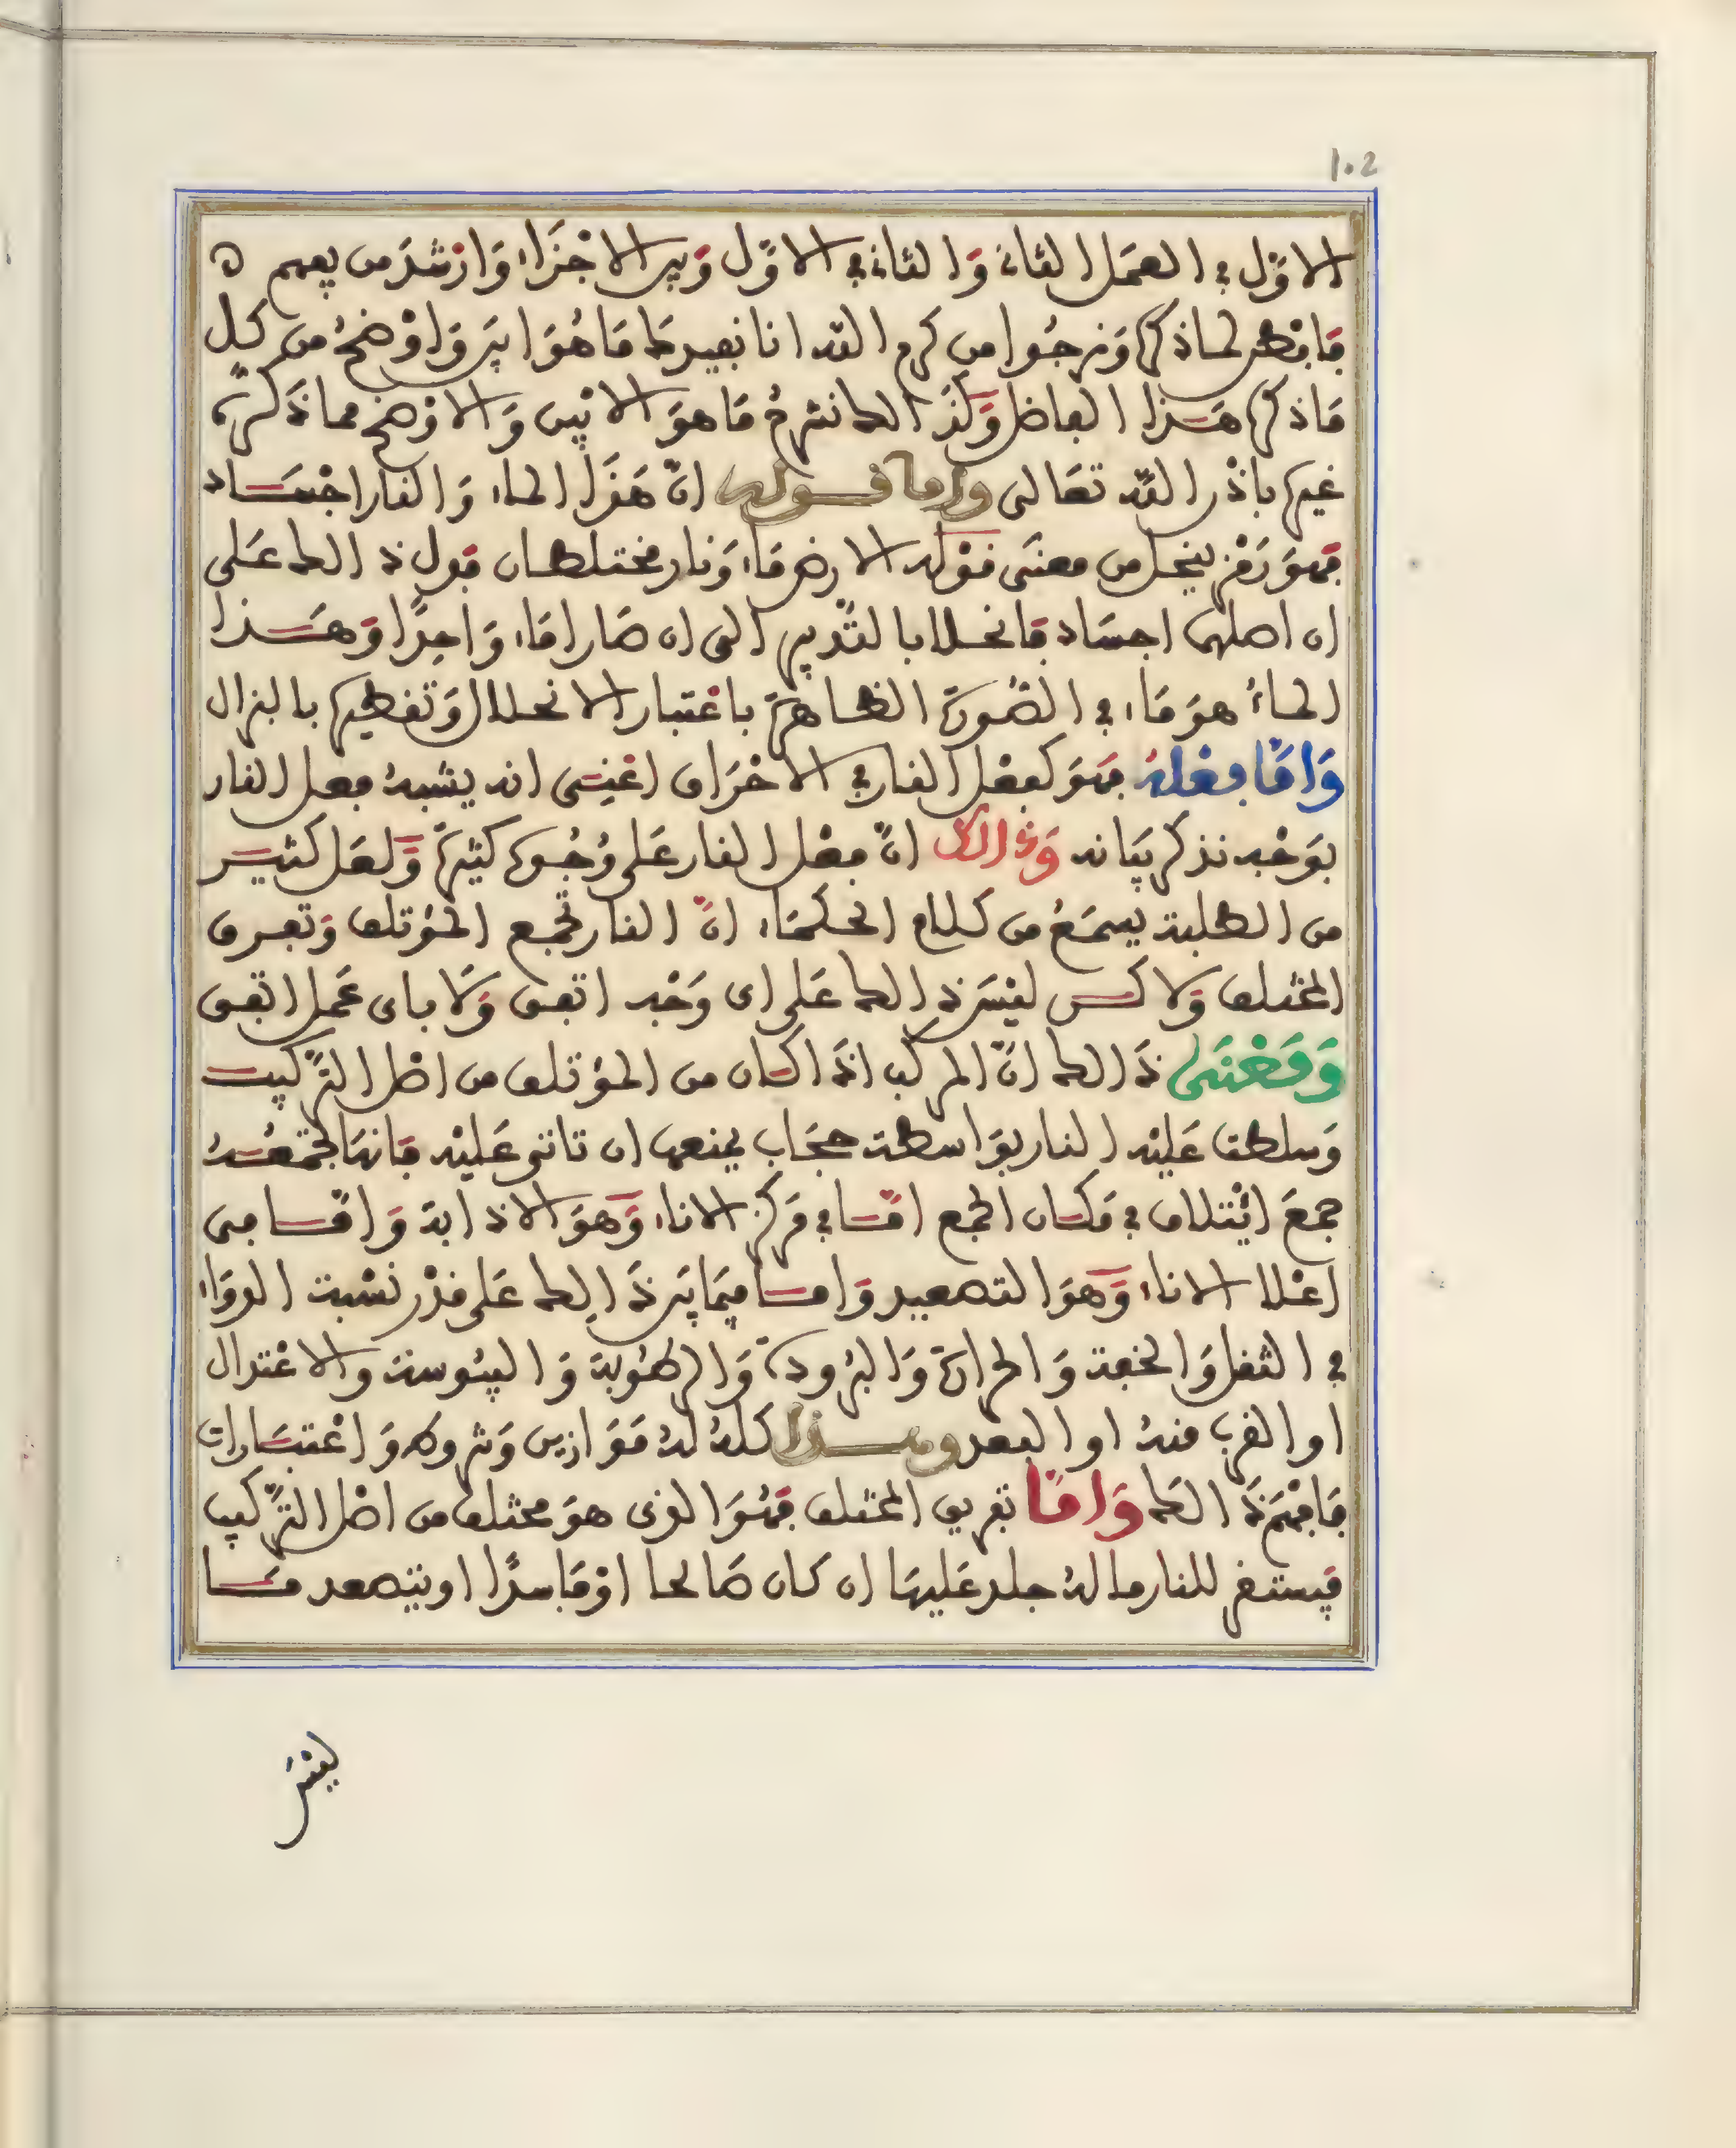 102
الاوّل في العمَل الثاني وَالثاني في الاوّل وَبين الاجْزَاء وَارْشدَ من يفهم ه
فَانْظر لماذكره وَنرجُوا من كرم الله انا نفيدكَ مَا هُوَ ابيَن وَاوْضحُ من كل
مَاذكره هَذا الفاضل وَكذَالك نشرحُ مَا هوَ الابْين وَالاوْضح مما ذكرهُ
غيره باذْن الله تعَالى واما قوله انّ هَذَا الماء وَالنار اجْسَاد
فهوَ رَمْز ينحل من معنَى قوْله الارض مَاء وَنار مختلطان فدل ذالك عَلى
ان اصلهما اجسَاد فانحلا بالتّدبير الى ان صَارا مَاء وَاحِدًا وَهَذا
الماءُ هوَ مَاء في الصُّورَة الظاهرَة باعْتبار الانحلال وَتقطيره بالنزال
وَامَّا فعْلهُ فهوَ كفعْل النار في الاحْرَاق اعْنِى انه يشبهُ فعل النار
بوَجْه نذكر بيَانه وَذالك انّ فعْل النار عَلى وُجُوه كثيرَة وَلعَل كثير
من الطلبة يسمَعُ من كلام الحكمَاء انّ النار تجْمع المؤتلف وَتفرق
المختلف وَلاكن ليْسَ ذالك عَلى اى وَجْه اتفق وَلَا باى عمَل اتفق
وَمَعْنَى ذَالك انّ المركب اذَا كان من المؤتلف من اصْل التّركيب
وَسلطت عَليْه النار بوَاسطة حجَاب يمنعها ان تاتى عَليْه فَانهَا تجْمعُهُ
جمعَ ائْتلاف في مَكان الجمع امّا في مَركز الاناء وَهوَ الاذابة وَامّا في
اعْلا الاناء وَهوَ التصعيد وَاما فيمَا بَين ذَالِك عَلى قدْر نسْبة الدوَاء
في الثقل وَالخفة وَالحرارَة وَالبرُودَة وَالرطُوبة وَاليبُوسة والاعْتدال
او القرب منهُ او البعد وهذا كلهُ لهُ مَوَازين وَشروط وَاعْتبَارات
فَافْهَمْ ذَالك وَامَّا تفريق المختلف فهُوَ الذى هوَ مختلف من اصْل التّركيب
فيستقر للنار ما لهُ جلد عَليهَا ان كان صَالحا اوْ فَاسدًا او يتصعد مَا
ليْسَ